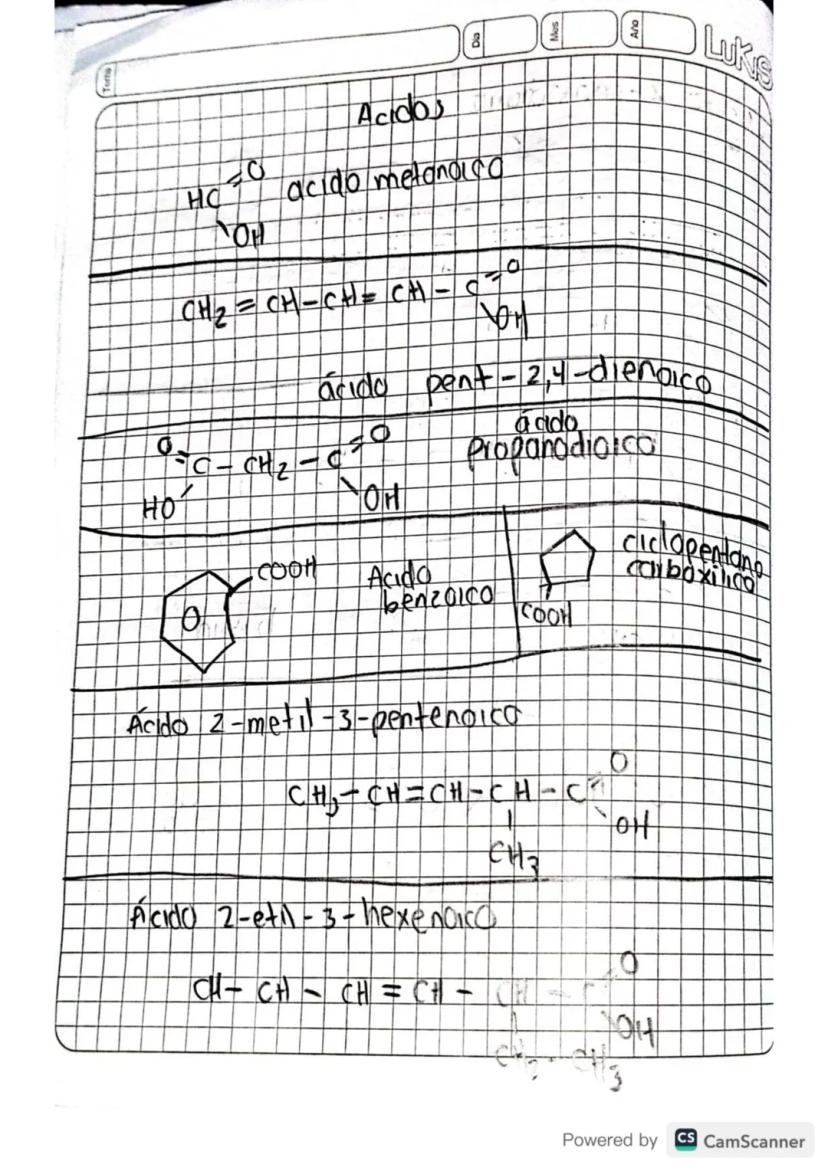 Tema
Dia
Mes
Año
LUKIS
Acidos
HC=O acido metanoico
\OH
CH2=CH-CH=CH-C=O
\OH
ácido pent-2,4-dienoico
O=C-CH2-C=O
HO/ \OH
ácido
propanodioico
COOH
Acido
benzoico
ciclopentano
carboxilico
COOH
Ácido 2-metil-3-pentenoico
CH3-CH=CH-CH-C=O
\OH
|
CH3
Ácido 2-etil-3-hexenoico
CH-CH-CH=CH-CH-C=O
\OH
CH2-CH3
Powered by CS CamScanner